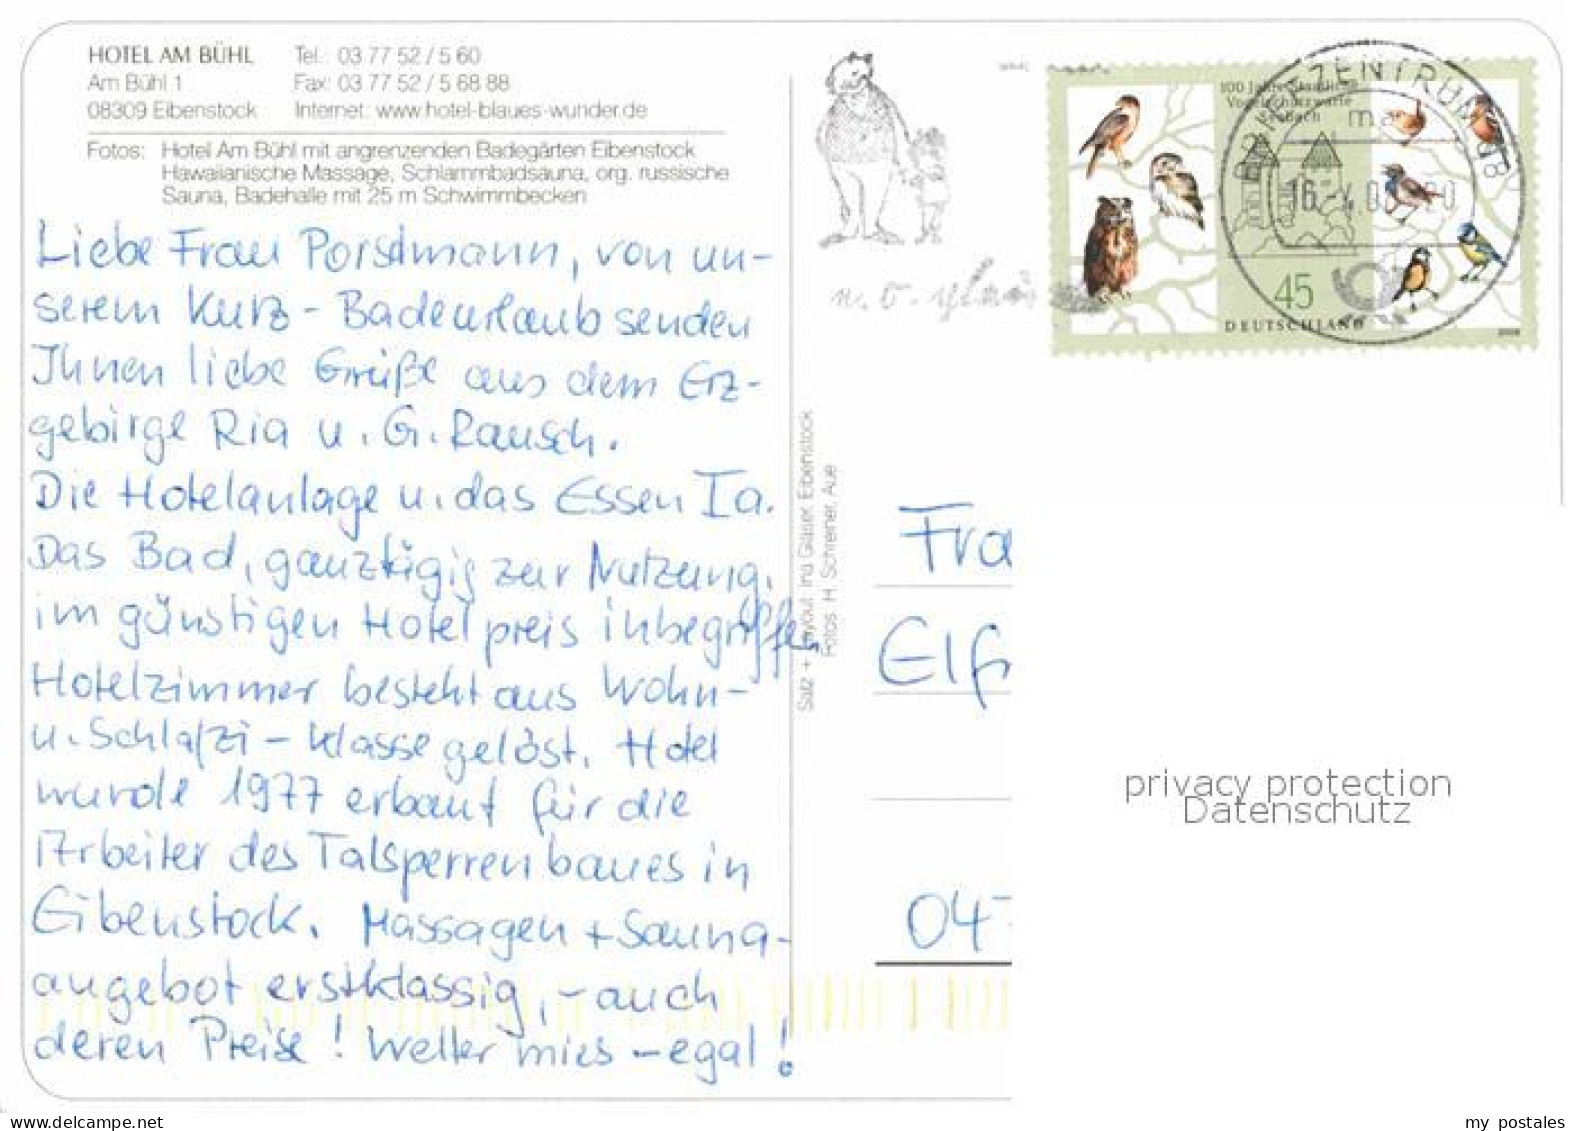 HOTEL AM BÜHL Tel.: 03 77 52 / 5 60
Am Bühl 1 Fax: 03 77 52 / 5 68 88
08309 Eibenstock Internet: www.hotel-blaues-wunder.de
Fotos: Hotel Am Bühl mit angrenzenden Badegärten Eibenstock
Hawaiianische Massage, Schlammbadsauna, org. russische
Sauna, Badehalle mit 25 m Schwimmbecken
Liebe Frau Porstmann, von un-
serem Kurz-Badeurlaub senden
Ihnen liebe Grüße aus dem Erz-
gebirge Ria u. G. Rausch.
Die Hotelanlage u. das Essen Ia.
Das Bad, ganztägig zur Nutzung,
im günstigen Hotelpreis inbegriffen
Hotelzimmer besteht aus Wohn-
u. Schlafzi – klasse gelöst. Hotel
wurde 1977 erbaut für die
Arbeiter des Talsperrenbaues in
Eibenstock. Massagen + Sauna-
angebot erstklassig, – auch
deren Preise! Wetter mies – egal!
Satz + Layout: Ina Gläser, Eibenstock
Fotos: H. Schreiner, Aue
100 Jahre Staatliche
Vogelschutzwarte
Seebach
45
DEUTSCHLAND
BRIEFZENTRUM 08
ma
16.-4.
Fra
Elfr
04
privacy protection
Datenschutz
my postales